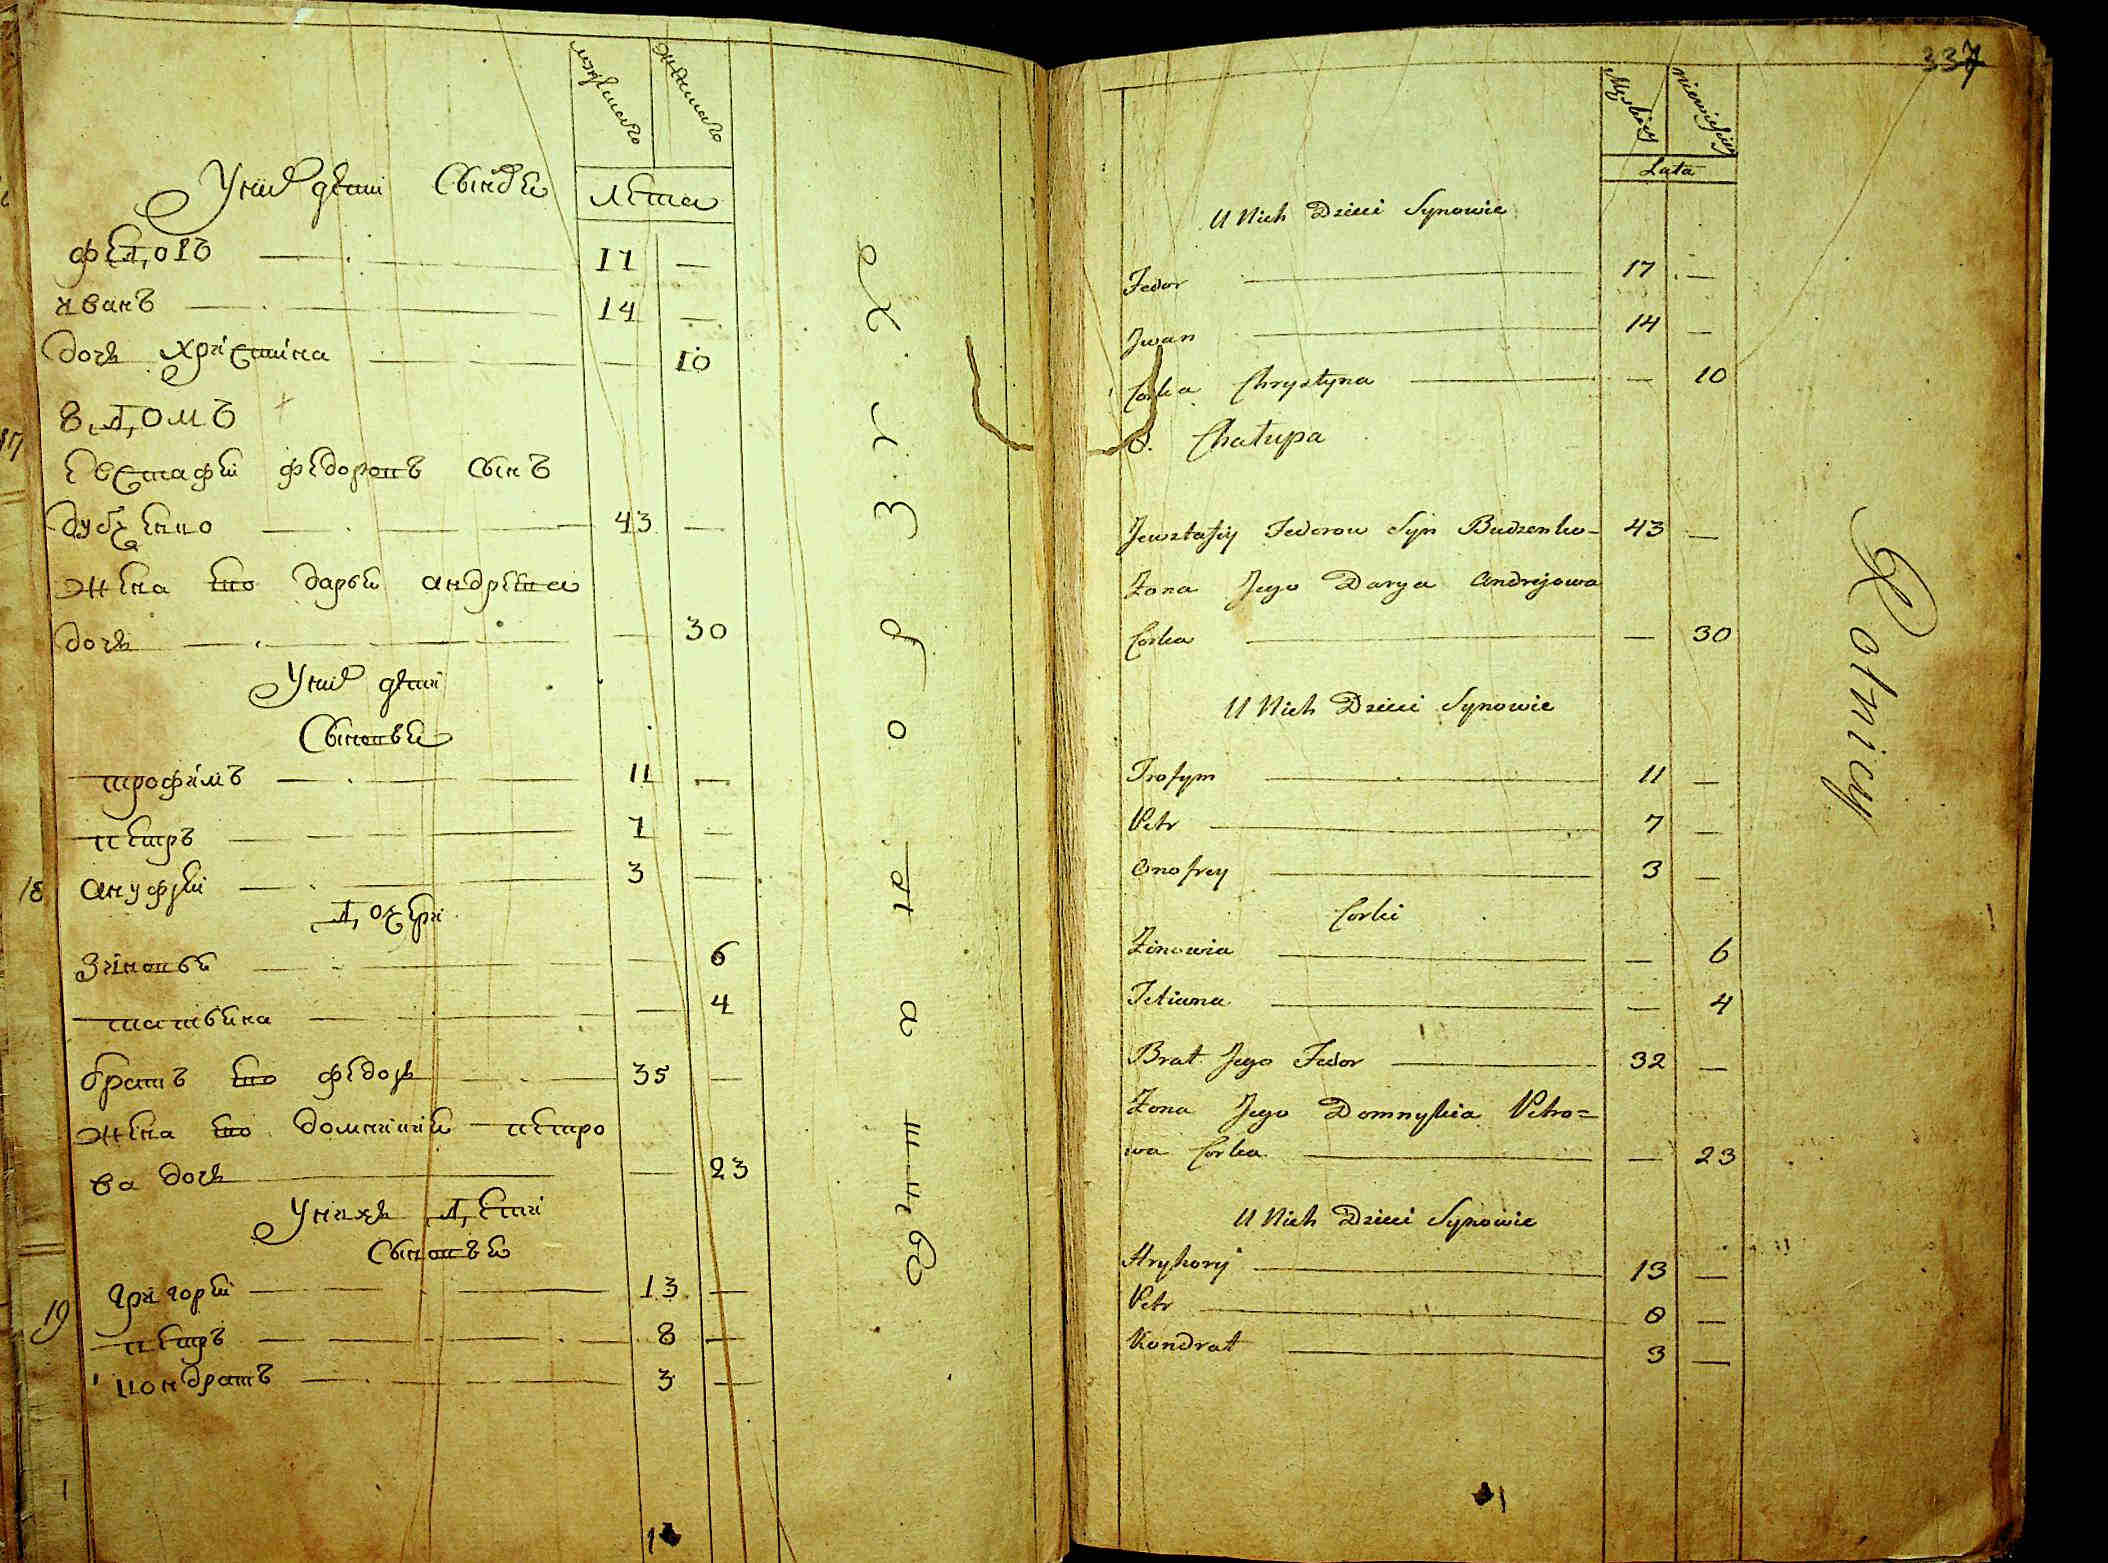 мужескаго женскаго
У них дети Сынов͡ьи
лета
Федоръ — 17 —
иванъ — 14 —
дочь христина — 10
8 домъ
Евстафей федоровъ сынъ
дубченко — 43 —
жена его дарья андреева
дочь — 30
У них дети
Сыновьи
трофимъ — 11 —
петръ — 7 —
ануфрей — 3 —
дочери
зиновья — 6
татьяна — 4
братъ его федоръ — 35 —
жена его домникия петро
ва дочь — 23
У нихъ дети
Сыновьи
григорей — 13 —
петръ — 8 —
кондратъ — 3 —
17
18
19
337
Męskiey niewieściey
Lata
U Nich Dzieci Synowie
Fedor — 17 —
Jwan — 14 —
Corka Chrystyna — 10
8. Chałupa
Jewstafiy Fedorow Syn Budzenko — 43 —
Żona Jego Darya Andrejowa
Corka — 30
U Nich Dzieci Synowie
Trofym — 11 —
Petr — 7 —
Onofrey — 3 —
Corki
Zinowia — 6
Tetiana — 4
Brat Jego Fedor — 32 —
Żona Jego Domnykia Petro=
wa Corka — 23
U Nich Dzieci Synowie
Hryhory — 13 —
Petr — 8 —
Kondrat — 3 —
Rotnicy